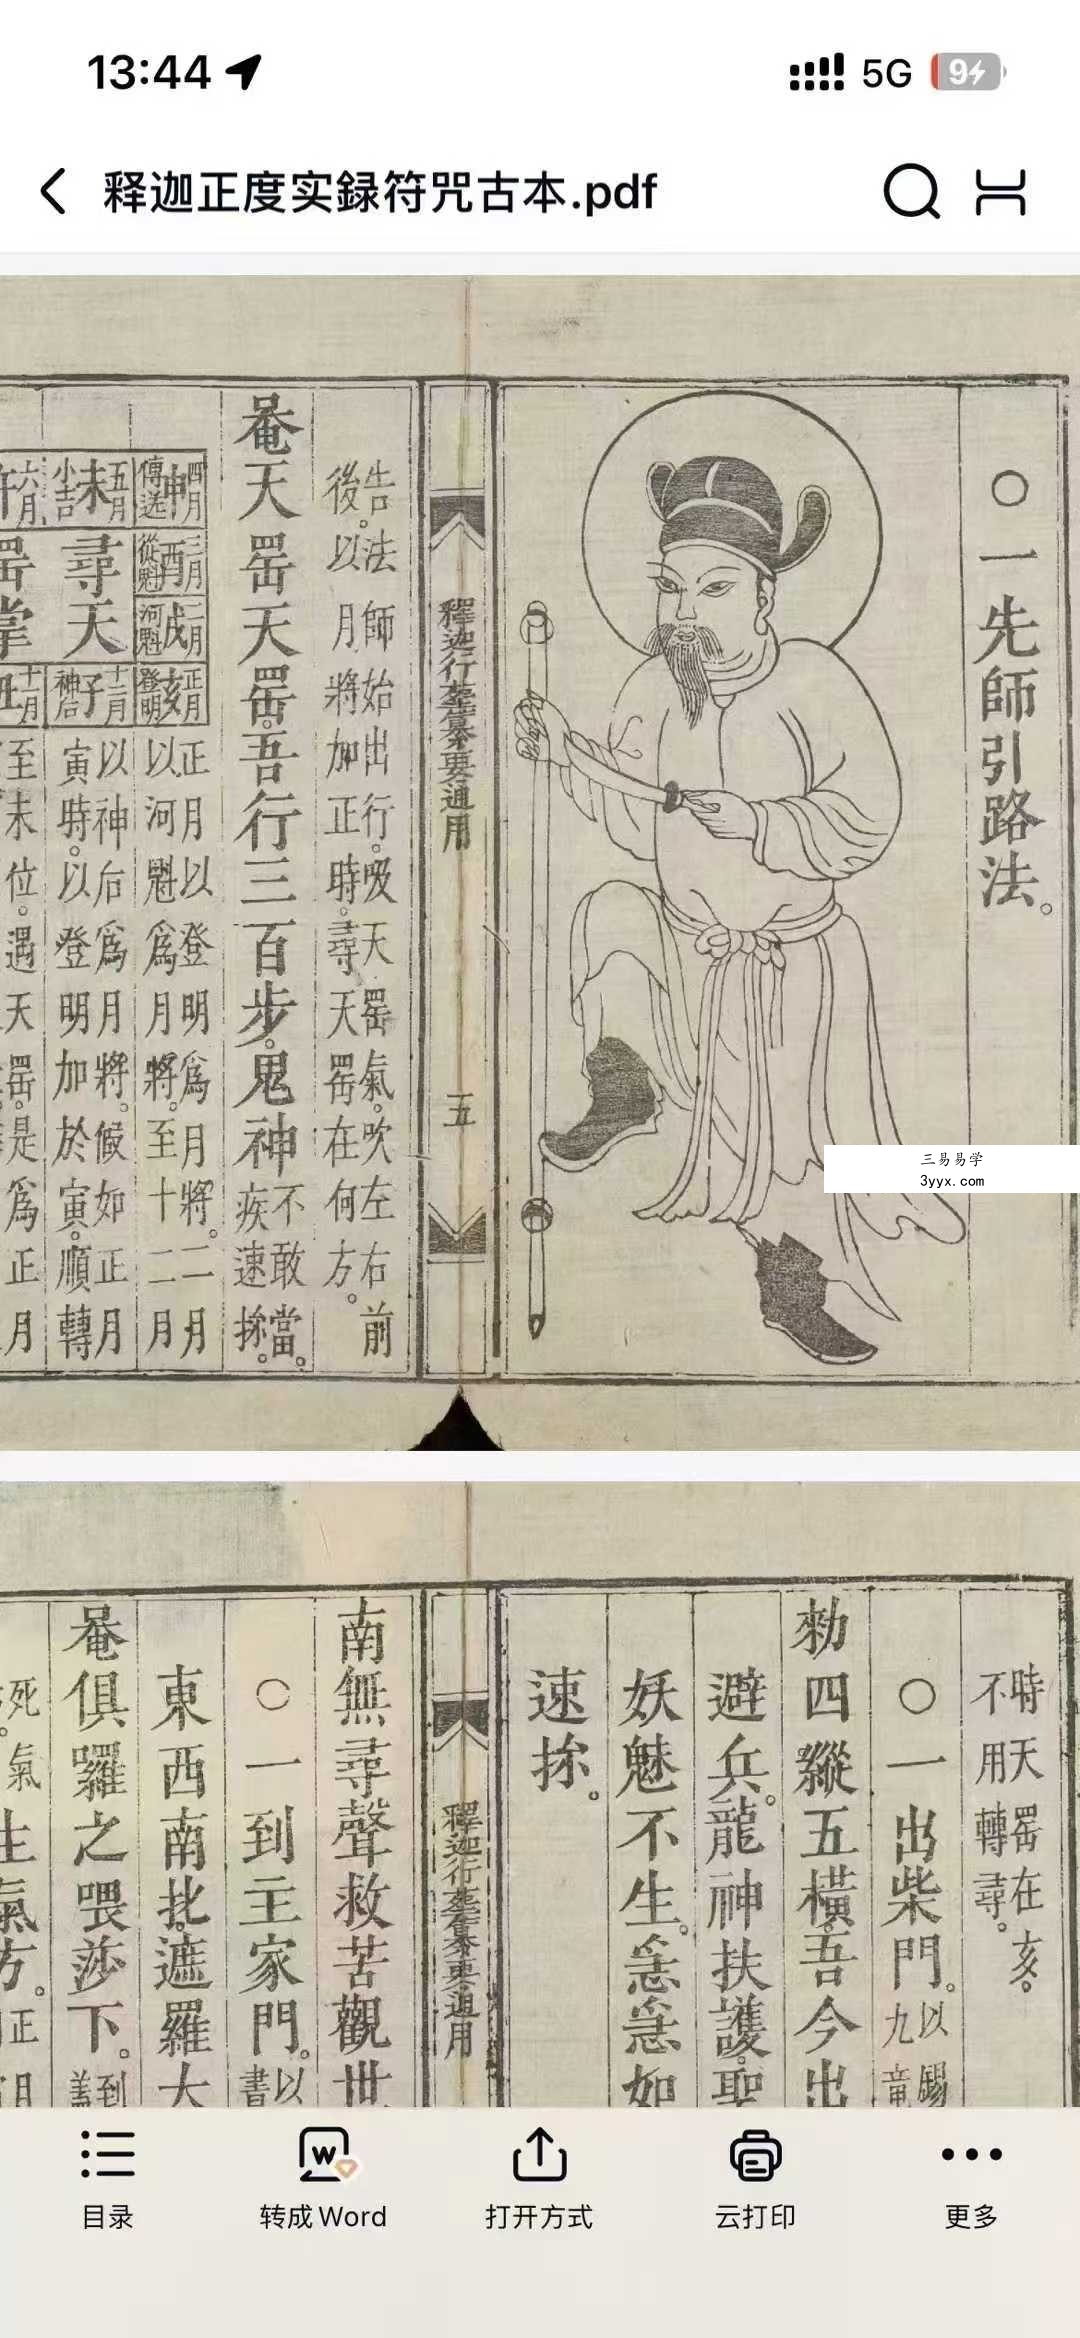 13:44
5G
9
释迦正度实録符咒古本.pdf
○一先師引路法。
三易易学
3yyx.com
釋迦行塟纂要通用
五
告法師始出行。吸天罡氣。吹左右前
後。以月將加正時。尋天罡在何方。
天罡天罡。吾行三百步。鬼神不敢當。
疾速
四月
申
傳送
五月
未
小吉
六月
三月
酉
從魁
二月
戌
河魁
正月
亥
登明
十二月
子
神后
十一月
丑
尋天
罡掌
正月以登明爲月將。二月
以河魁爲月將。至十二月
以神后爲月將。候如正月
寅時。以登明加於寅。順轉
至未位。遇天罡。是爲正月
時天罡在亥。
不用轉尋。
○一出柴門。以錫
九竜
勑四縱五橫。吾今出
避兵。龍神扶護。聖
妖魅不生。急急如
速
釋迦行塟纂要通用
南無尋聲救苦觀世
○一到主家門。以
書
東西南北。遮羅大
俱囉之喂莎下。到
蓋
死氣
生氣方。正月
目录
转成Word
打开方式
云打印
更多